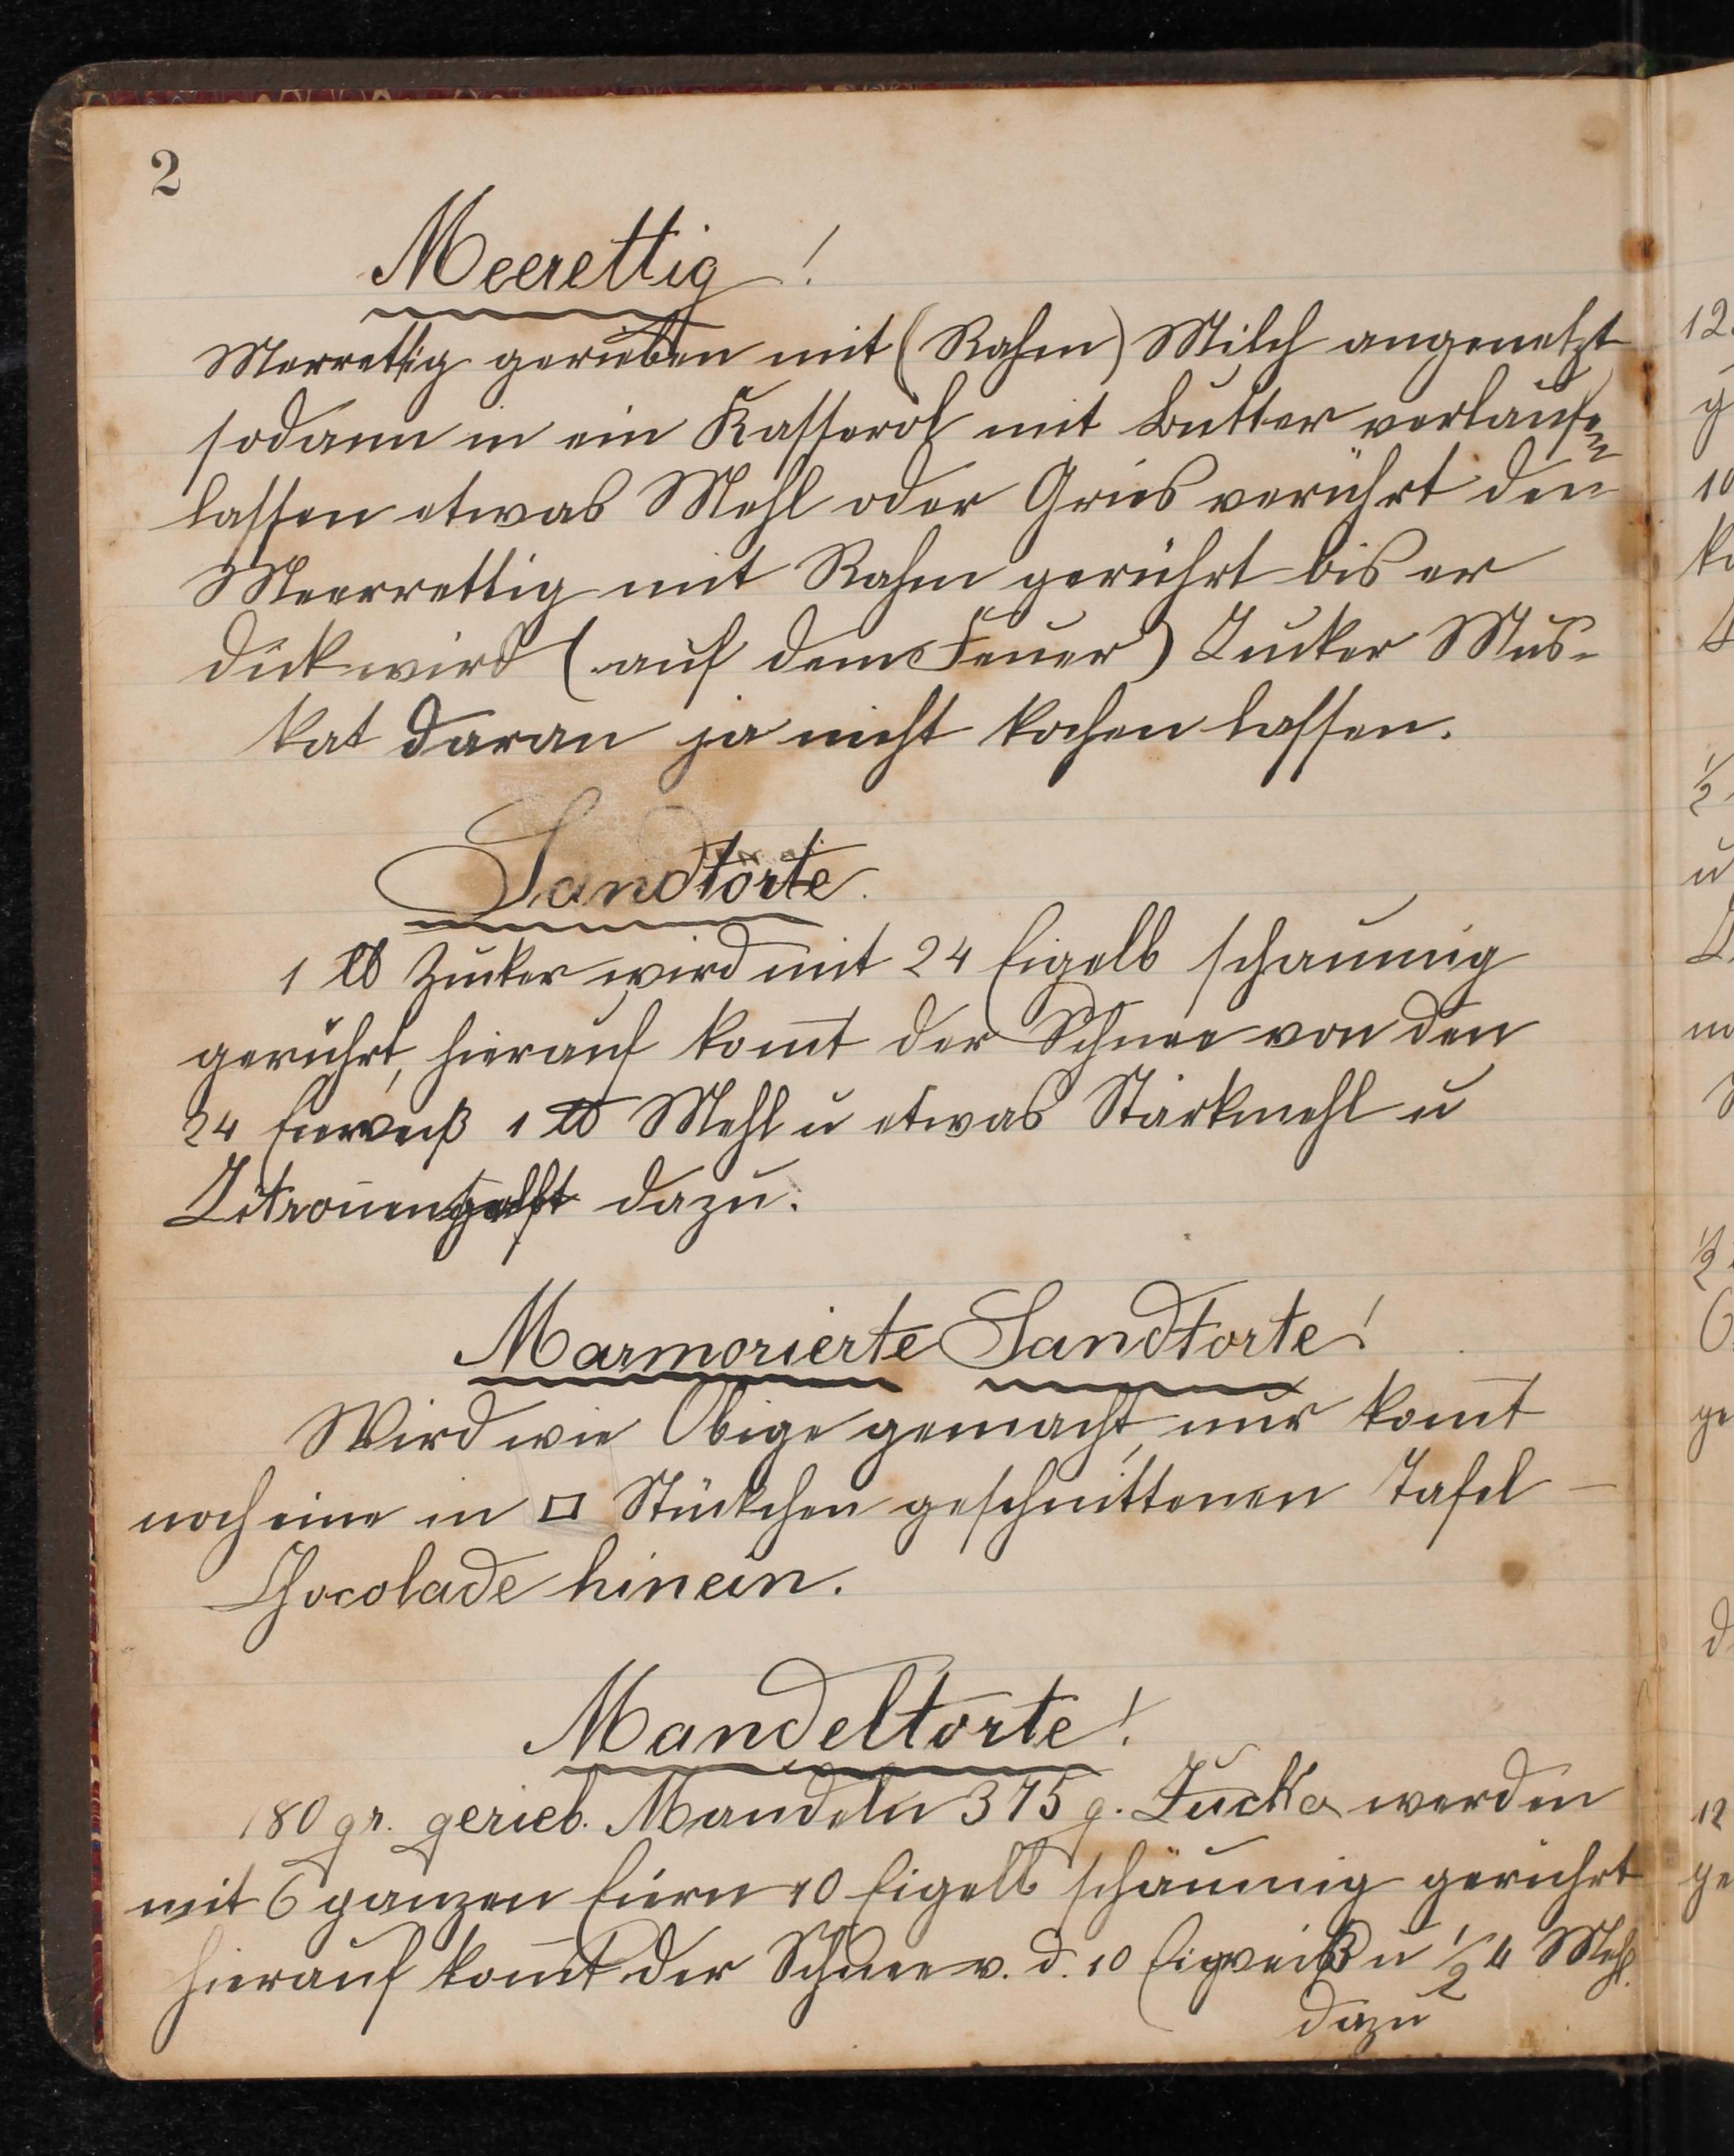 2
Meerettig!
Merrettig gerieben mit (Rahm) Milch angenetzt
sodann in ein Kasserol mit Butter verlaufen
lassen etwas Mehl oder Gries verührt den
Meerrettig mit Rahm gerührt bis er
dick wird (auf dem Feuer) Zucker Mus-
kat daran ja nicht kochen lassen.
Sandtorte.
1 ℔ Zucker wird mit 24 Eigelb schaumig
gerührt, hierauf kom̅t der Schnee von den
24 Eierweiß 1 ℔ Mehl u etwas Stärkmehl u
Zitronensaft dazu.
Marmorierte Sandtorte!
Wird wie Obige gemacht, nur kom̅t
noch eine in □ Stückchen geschnittenen Tafel –
Chocolade hinein.
Mandeltorte!
180 gr. gerieb. Mandeln 375 g. Zucker werden
mit 6 ganzen Eiern 10 Eigelb schäumig gerührt
hierauf kom̅t der Schnee v. d. 10 Eigweiß u 1/2 ℔ Mehl.
dazu
12
g
10
1/2
u
ge
d
12
ge